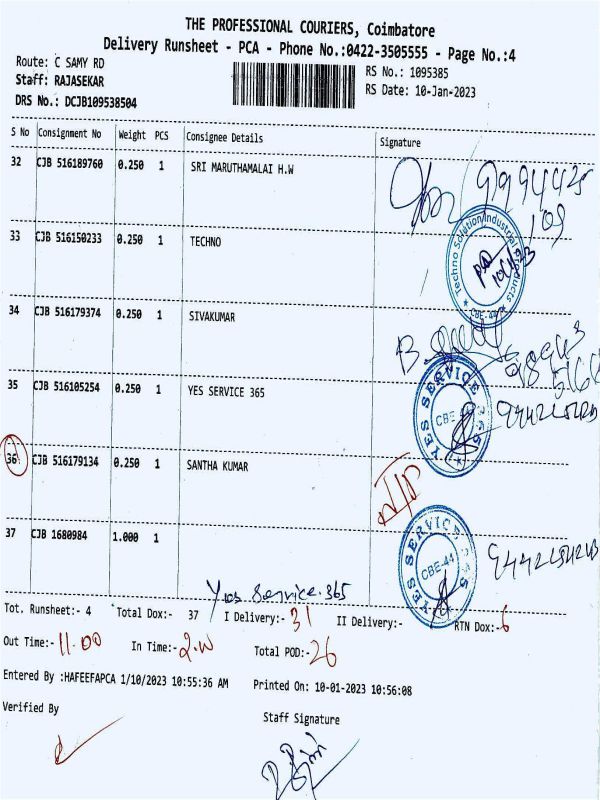 THE PROFESSIONAL COURIERS, Coimbatore
Delivery Runsheet - PCA - Phone No.:0422-3505555 - Page No.:4
Route: C SAMY RD
RS No.: 1095385
Staff: RAJASEKAR
RS Date: 10-Jan-2023
DRS No.: DCJB109538504
S No Consignment No Weight PCS Consignee Details Signature
32 CJB 516189760 0.250 1 SRI MARUTHAMALAI H.W
33 CJB 516150233 0.250 1 TECHNO
109
Techno Solution Industrial Products
CBE-44
34 CJB 516179374 0.250 1 SIVAKUMAR
35 CJB 516105254 0.250 1 YES SERVICE 365
YES SERVICE 365
CBE-44
36 CJB 516179134 0.250 1 SANTHA KUMAR
37 CJB 1680984 1.000 1
YES SERVICE 365
CBE-44
Yes Service.365
Tot. Runsheet:- 4 Total Dox:- 37 I Delivery:- 31 II Delivery:- RTN Dox:- 6
Out Time:- 11.00 In Time:- Total POD:- 26
Entered By :HAFEEFAPCA 1/10/2023 10:55:36 AM Printed On: 10-01-2023 10:56:08
Verified By
Staff Signature